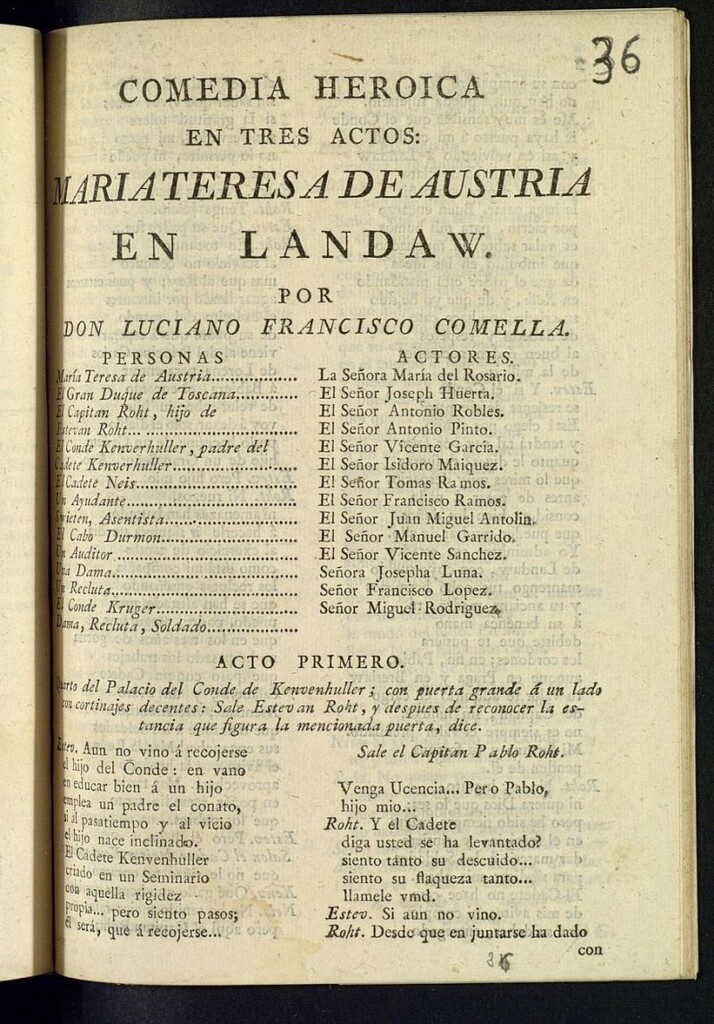 36
COMEDIA HEROICA
EN TRES ACTOS:
MARIA TERESA DE AUSTRIA
EN LANDAW.
POR
DON LUCIANO FRANCISCO COMELLA.
PERSONAS
María Teresa de Austria..................
El Gran Duque de Toscana.............
El Capitan Roht, hijo de
Estevan Roht... ............................
El Conde Kenverhuller, padre del
Cadete Kenverhuller......................
El Cadete Neis..............................
Un Ayudante................................
Swieten, Asentista........................
El Cabo Durmon...........................
Un Auditor ..................................
Una Dama...................................
Un Recluta...................................
El Conde Kruger..........................
Dama, Recluta, Soldado..................
ACTORES.
La Señora María del Rosario.
El Señor Joseph Huerta.
El Señor Antonio Robles.
El Señor Antonio Pinto.
El Señor Vicente Garcia.
El Señor Isidoro Maiquez.
El Señor Tomas Ramos.
El Señor Francisco Ramos.
El Señor Juan Miguel Antolin.
El Señor Manuel Garrido.
El Señor Vicente Sanchez.
Señora Josepha Luna.
Señor Francisco Lopez.
Señor Miguel Rodriguez.
ACTO PRIMERO.
Quarto del Palacio del Conde de Kenvenhuller; con puerta grande á un lado
con cortinajes decentes: Sale Estevan Roht, y despues de reconocer la es-
tancia que figura la mencionada puerta, dice.
Estev. Aun no vino á recojerse
el hijo del Conde: en vano
en educar bien á un hijo
emplea un padre el conato,
si al pasatiempo y al vicio
el hijo nace inclinado.
El Cadete Kenvenhuller
criado en un Seminario
con aquella rigidez
propia... pero siento pasos;
él será, que á recojerse...
Sale el Capitan Pablo Roht.
Venga Ucencia... Pero Pablo,
hijo mio...
Roht. Y el Cadete
diga usted se ha levantado?
siento tanto su descuido...
siento su flaqueza tanto...
llamele vmd.
Estev. Si aun no vino.
Roht. Desde que en juntarse ha dado
con
36